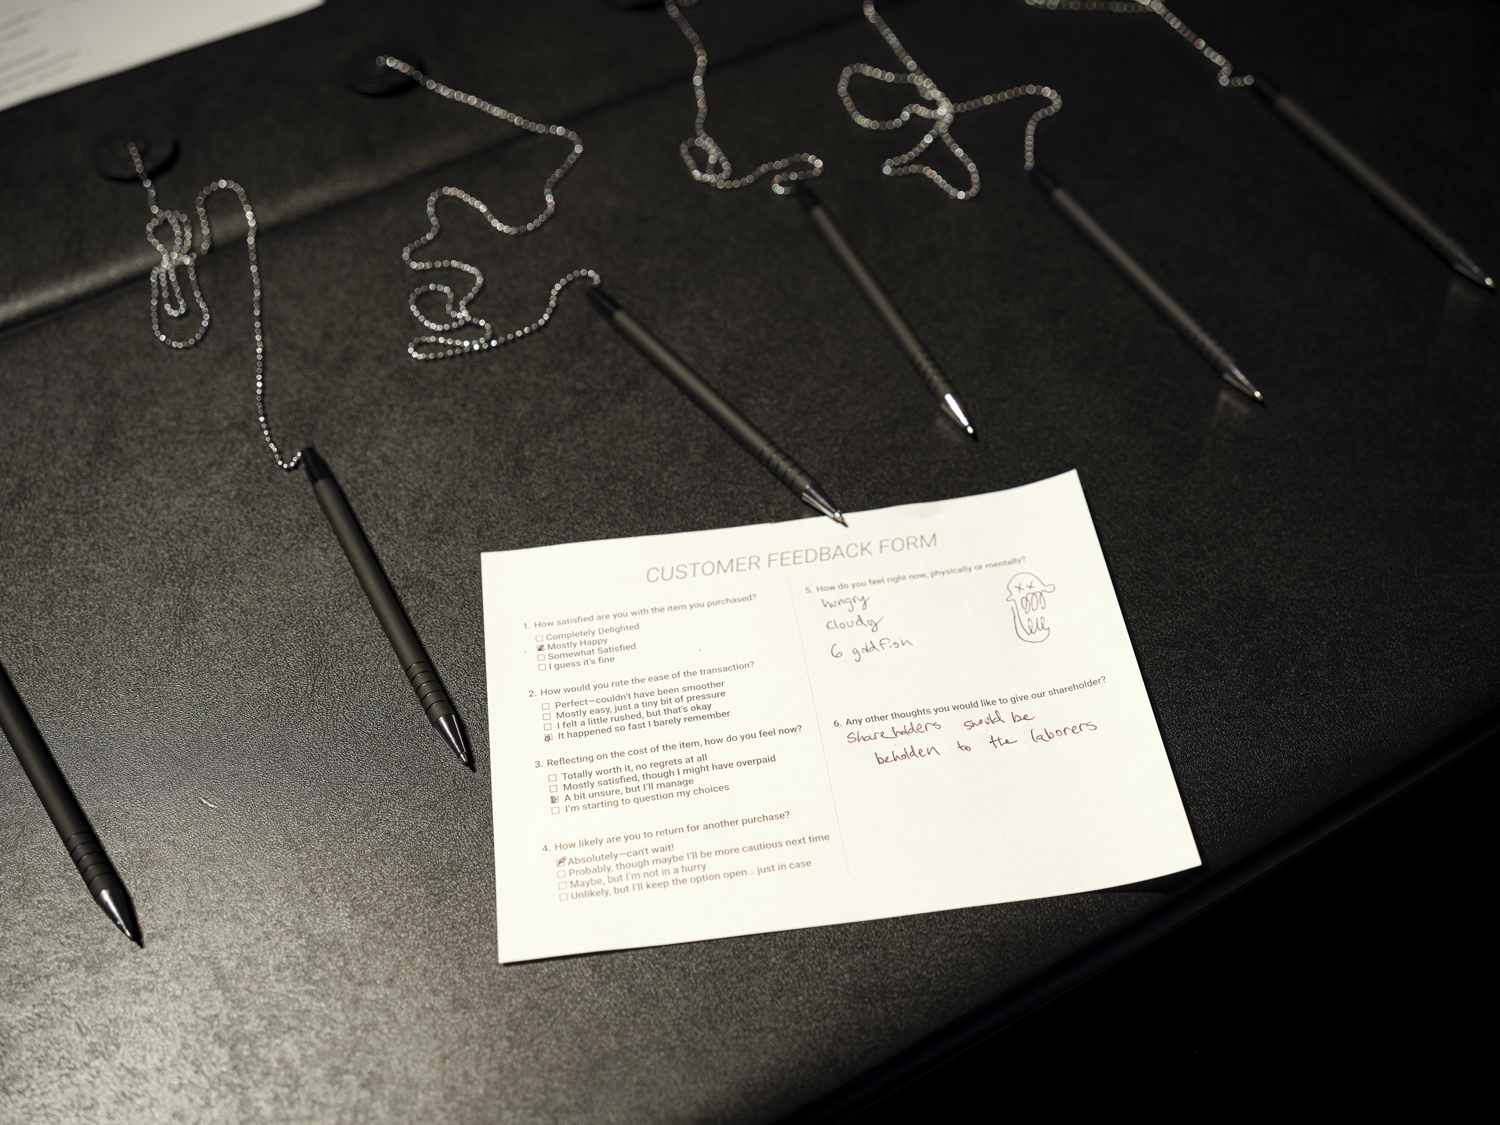 CUSTOMER FEEDBACK FORM
1. How satisfied are you with the item you purchased?
Completely Delighted
Mostly Happy
Somewhat Satisfied
I guess it's fine
2. How would you rate the ease of the transaction?
Perfect—couldn't have been smoother
Mostly easy, just a tiny bit of pressure
I felt a little rushed, but that's okay
It happened so fast I barely remember
3. Reflecting on the cost of the item, how do you feel now?
Totally worth it, no regrets at all
Mostly satisfied, though I might have overpaid
A bit unsure, but I'll manage
I'm starting to question my choices
4. How likely are you to return for another purchase?
Absolutely—can't wait!
Probably, though maybe I'll be more cautious next time
Maybe, but I'm not in a hurry
Unlikely, but I'll keep the option open... just in case
5. How do you feel right now, physically or mentally?
hungry
cloudy
6 goldfish
6. Any other thoughts you would like to give our shareholder?
Shareholders should be
beholden to the laborers